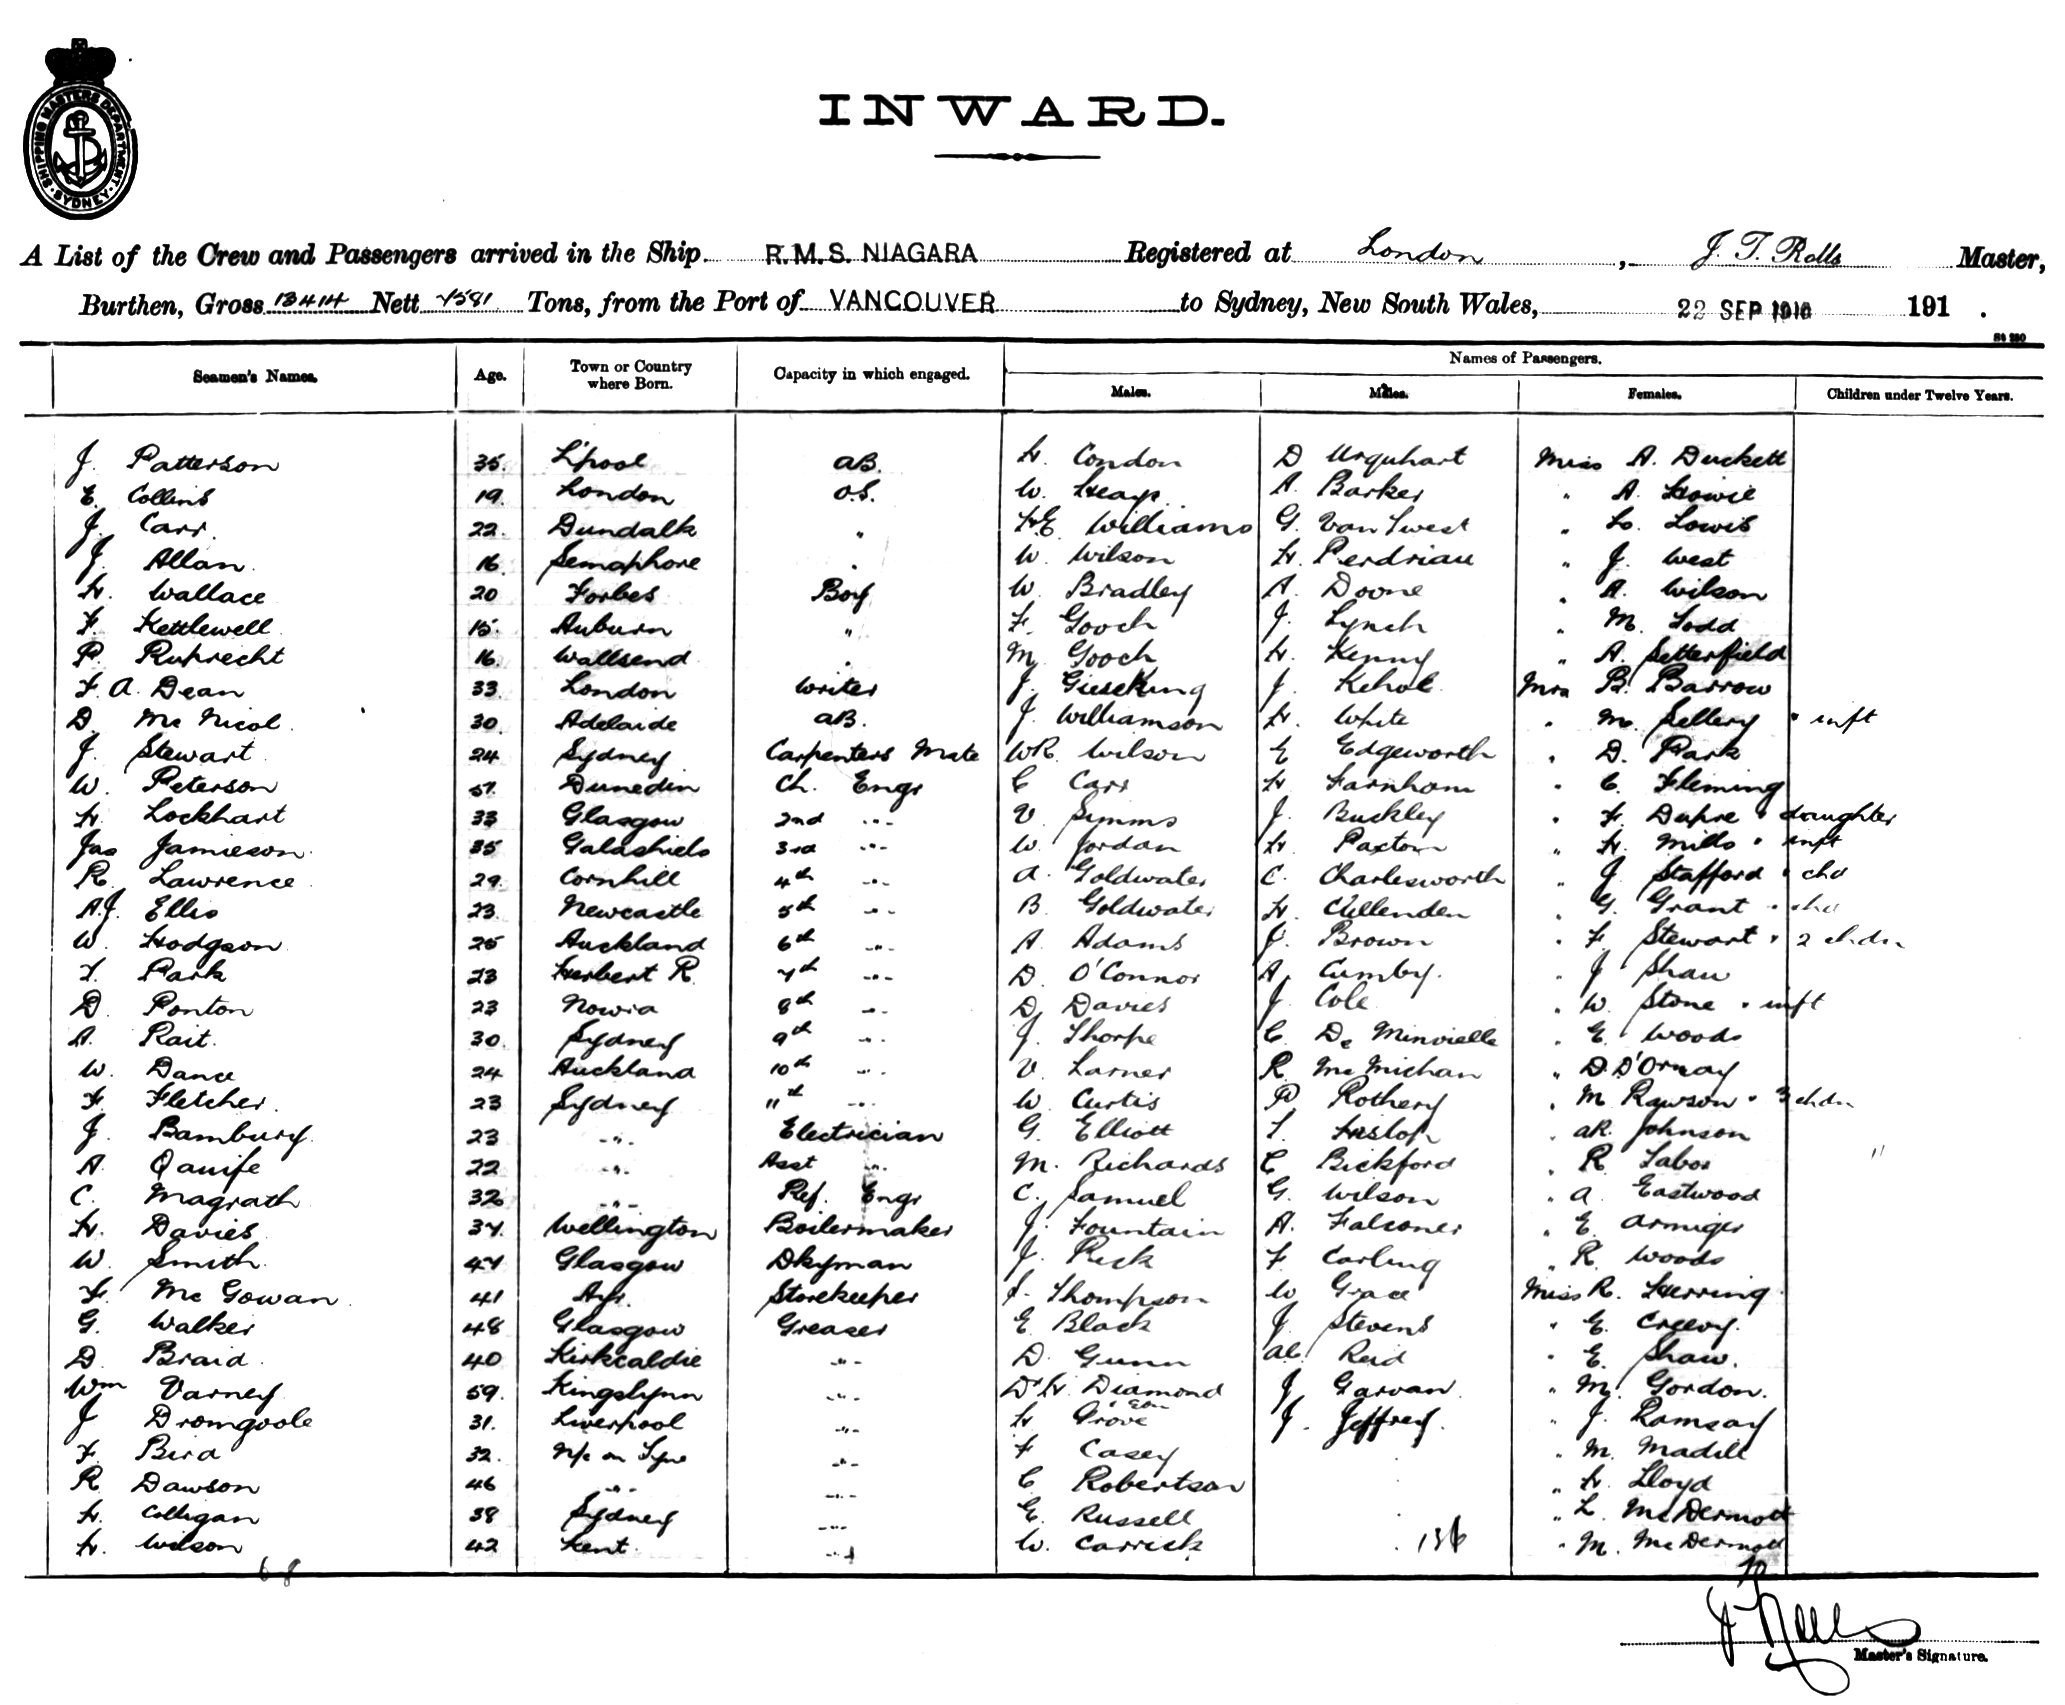 SHIPPING MASTERS DEPARTMENT. SYDNEY
INWARD.
A List of the Crew and Passengers arrived in the Ship R.M.S. NIAGARA Registered at London, J. T. Rolls Master,
Burthen, Gross 13414 Nett 7581 Tons, from the Port of VANCOUVER to Sydney, New South Wales, 22 SEP 191 .
St 280
Names of Passengers.
Seamen's Names. Age. Town or Country where Born. Capacity in which engaged. Males. Males. Females. Children under Twelve Years.
J. Patterson 35 L'pool AB. H. Condon D Urquhart Miss A. Duckett
E. Collins 19 London O.S. W. Heap A. Barker " A. Howie
J. Carr 22 Dundalk " H.E Williams G. Van Twest " L. Lewis
J. Allan 16 Semaphore " W. Wilson H. Perdriau " J. West
H. Wallace 20 Forbes Boy W. Bradley A. Doone " A. Wilson
F. Kettlewell 15 Auburn " F. Gooch J. Lynch " M. Todd
P. Ruprecht 16 Wallsend " M. Gooch H. Kenny " A. Setterfield
F. A. Dean 33 London Writer J. Gieseking J. Kehoe Mrs B. Barrow
D. McNicol 30 Adelaide AB. J. Williamson H. White " M. Sellery " inft
J. Stewart 24 Sydney Carpenters Mate WR. Wilson E Edgeworth " D. Park
W. Peterson 57 Dunedin Ch. Engr C Carr H. Farnham " C. Fleming
H. Lockhart 33 Glasgow 2nd -"- V. Simms J. Buckley " F. Dupre " daughter
Jas Jamieson 35 Galashiels 3rd -"- W. Jordan H. Paxton " H. Mills " inft
R. Lawrence 29 Cornhill 4th -"- A. Goldwater C. Charlesworth " J. Stafford " chd
A.J. Ellis 23 Newcastle 5th -"- B Goldwater H. Cullenden " G. Grant " chd
W. Hodgson 25 Auckland 6th -"- A. Adams J. Brown " F Stewart " 2 chdn
T. Park 23 Herbert R. 7th -"- D. O'Connor A. Cumby. " J Shaw
D. Ponton 23 Nowra 8th -"- D. Davies J. Cole " W. Stone " inft
A. Rait 30 Sydney 9th -"- J. Thorpe C De Minvielle " E. Woods
W. Dance 24 Auckland 10th -"- V. Larner R. McMichan " D. D'Ornay
F. Fletcher 23 Sydney 11th -"- W. Curtis P Rothery " M Rawson " 3 chdn
J. Bambury 23 -"- Electrician G. Elliott T. Heslop " AR. Johnson
A. Quaife 22 -"- Asst -"- M. Richards C Bickford " R. Tabor
C. Magrath 32 -"- Ref. Engr C. Samuel G. Wilson " A. Eastwood
H. Davies 37 Wellington Boilermaker J. Fountain A. Falconer " E. Armiger
W. Smith 47 Glasgow Dkyman J. Peck F Carling " R. Woods
F. McGowan 41 Ayr. Storekeeper J. Thompson W Grace Miss R. Herring
G. Walker 48 Glasgow Greaser E Black J Stevens " E. Creevy.
D. Braid 40 Kirkcaldie -"- D. Gunn Al. Reid " E. Shaw.
Wm Varney 59 Kingslynn -"- Dr H. Diamond J. Garvan " M. Gordon.
J Dromgoole 31. Liverpool -"- H. Grove J. Jeffrey. " J. Ramsay
F. Bird 32. N/c on Tyne -"- F Casey " M. Madill
R Dawson 46 -"- -"- C Robertson " H. Lloyd
H. Colligan 38 Sydney -"- E. Russell " L. McDermott
H. Wilson 42 Kent -"- W. Carrick 136 " M. McDermott
68 70
J T Rolls
Master's Signature.